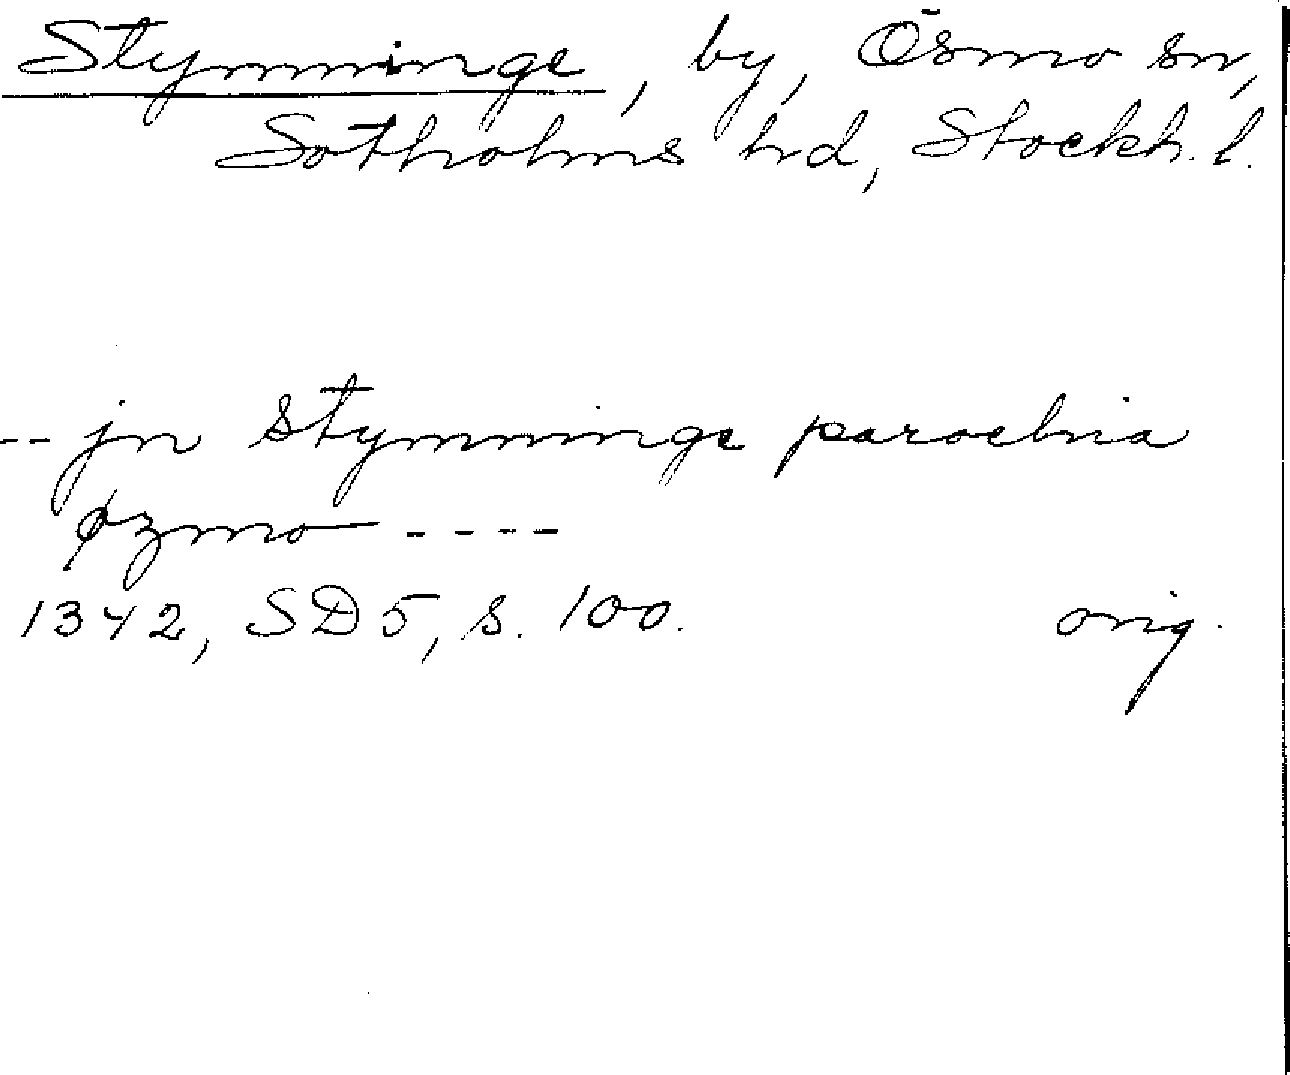 Stymminge, by, Ösmo sn,
Sotholms hd, Stockh. l.
-- jn Stymminge parochia
øzmo ----
1342, SD 5, s. 100. orig.